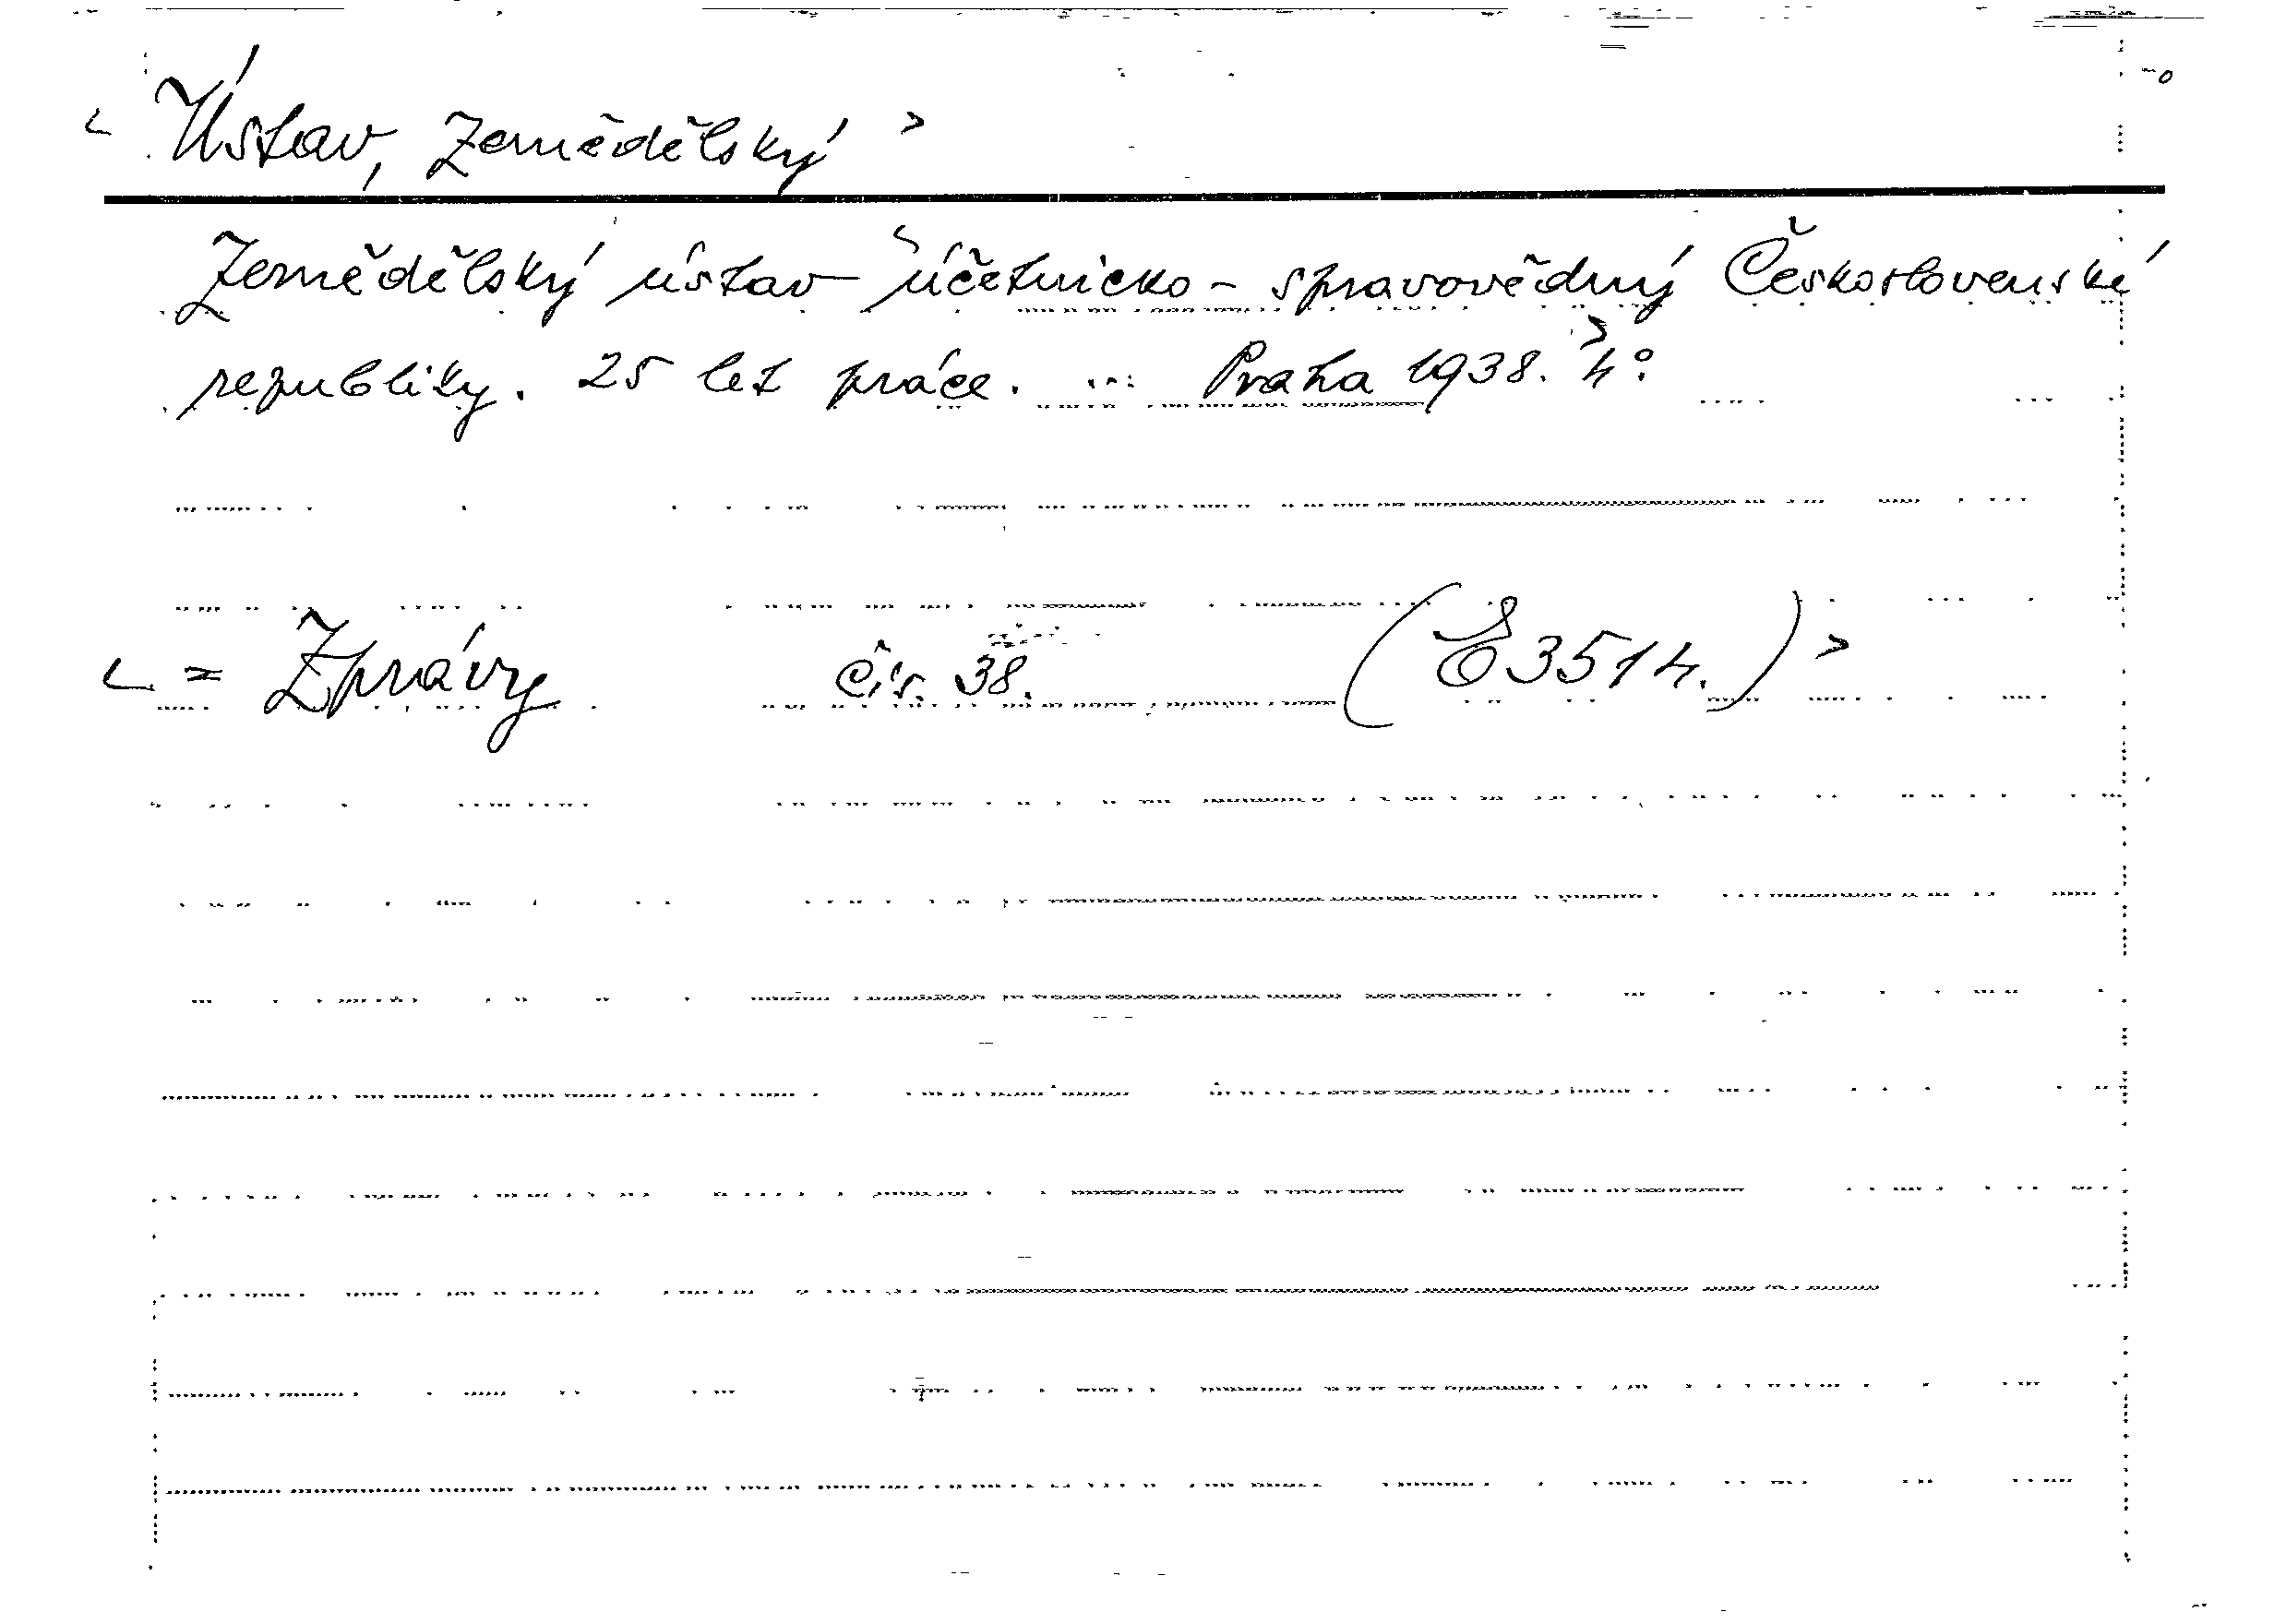 < Ústav, zemědělský >
Zemědělský ústav < účetnicko - spravovědný Československé
republiky. 25 let práce. ... Praha 1938. > 4°.
< = Zprávy čís. 38. (E 3514.) >